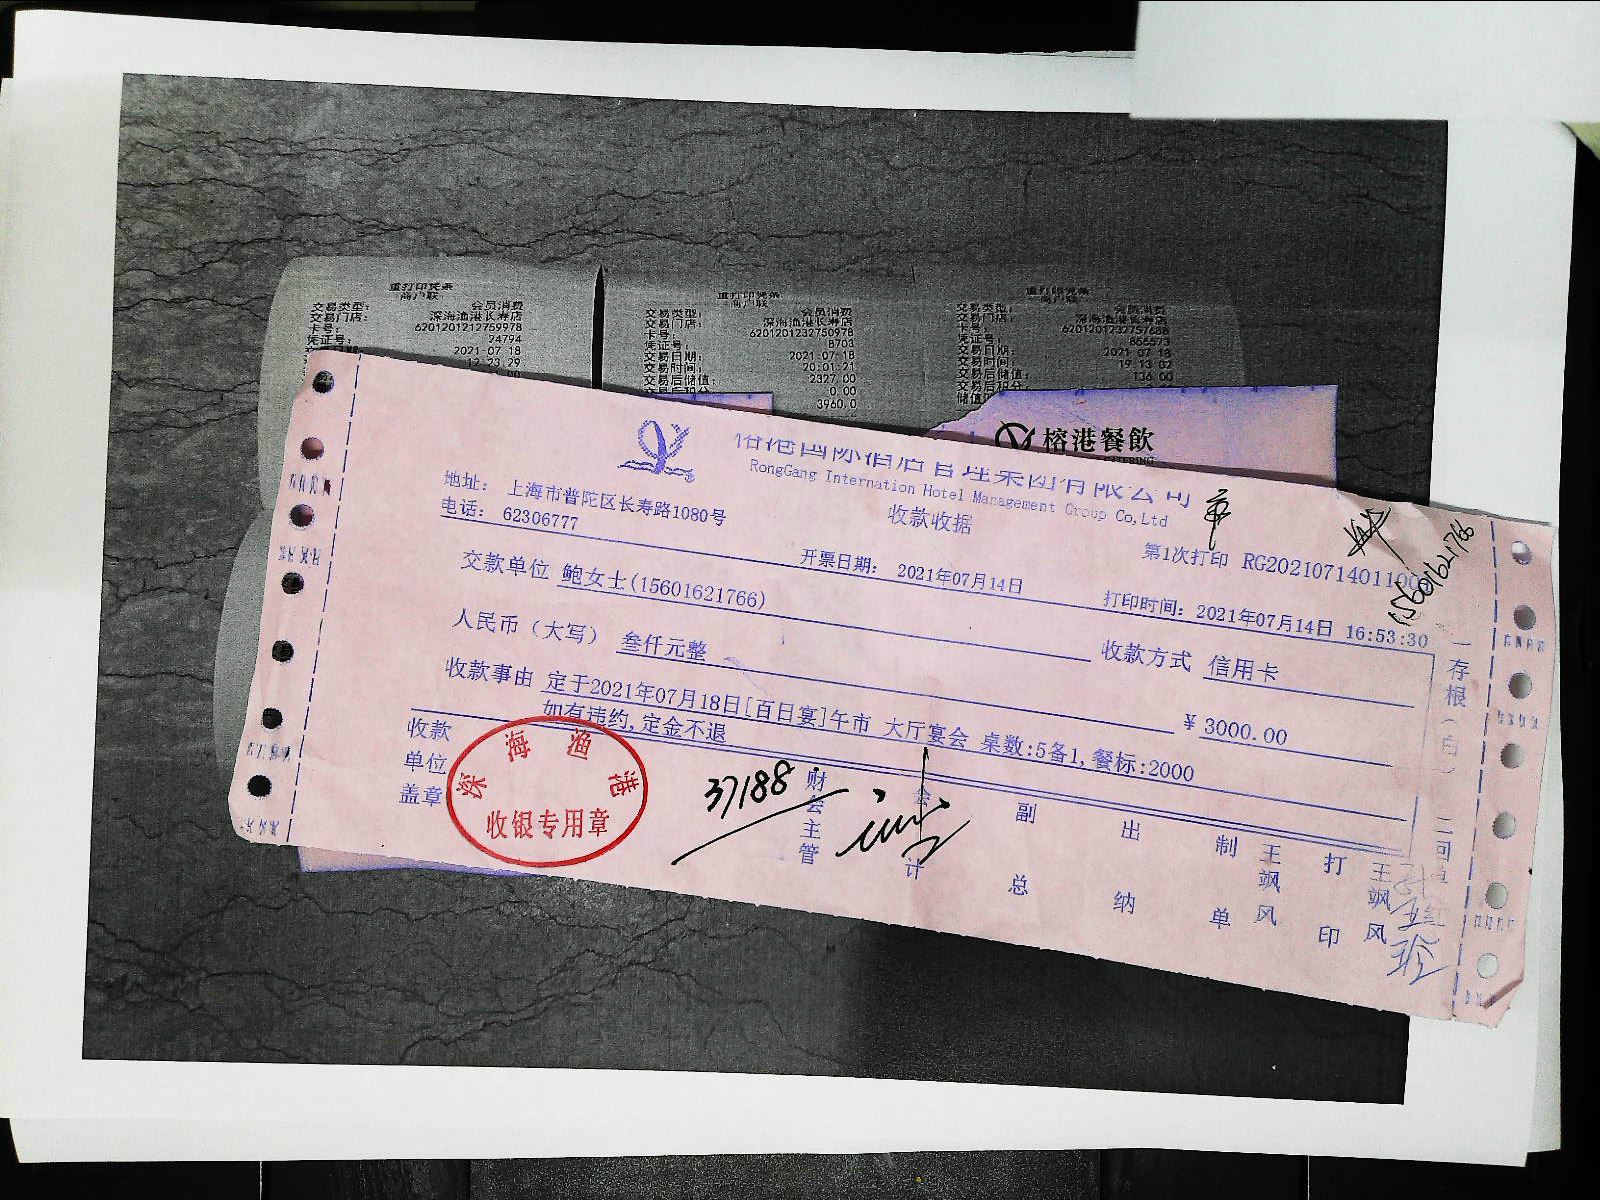 重打印凭条
商户联
交易类型： 会员消费
交易门店： 深海渔港长寿店
卡号： 6201201212759978
凭证号： 24794
2021-07-18
12:23:29
重打印凭条
商户联
交易类型： 会员消费
交易门店： 深海渔港长寿店
卡号： 6201201232750978
凭证号： 8703
交易日期： 2021-07-18
交易时间： 20:01:21
交易后储值： 2327.00
0.00
3960.0
重打印凭条
商户联
交易类型： 会员消费
交易门店： 深海渔港长寿店
卡号： 6201201232757688
凭证号： 856573
交易日期： 2021-07-18
交易时间： 19:13:02
交易后储值： 136.00
交易后积分
榕港餐飲
榕港国际酒店管理集团有限公司
RongGang Internation Hotel Management Group Co,Ltd
收款收据
地址： 上海市普陀区长寿路1080号
电话： 62306777
开票日期： 2021年07月14日
第1次打印 RG2021071401100
打印时间：2021年07月14日 16:53:30
15601621766
交款单位 鲍女士(15601621766)
收款方式 信用卡
人民币（大写） 叁仟元整
￥3000.00
收款事由 定于2021年07月18日[百日宴]午市 大厅宴会 桌数:5备1,餐标:2000
如有违约,定金不退
一存根（白）
收款单位盖章
深海渔港
收银专用章
37188
财会主管
会计
副总
出纳
制单 王飒风
打印 王飒风